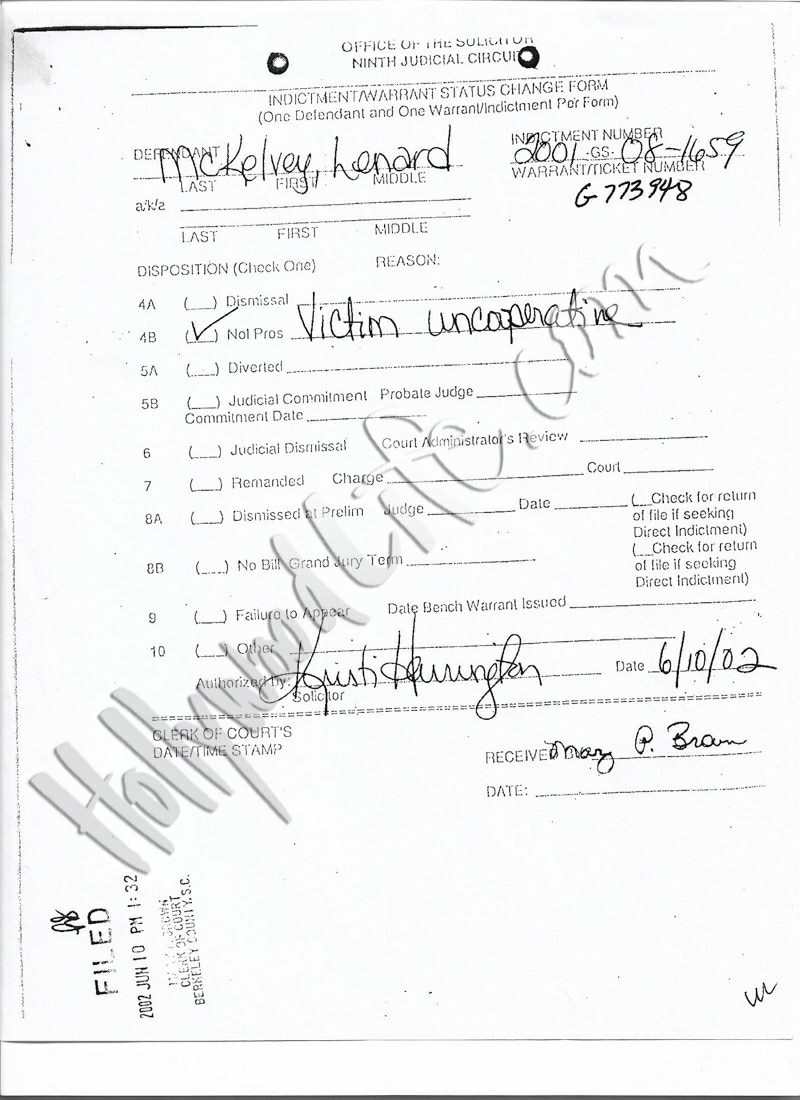 OFFICE OF THE SOLICITOR
NINTH JUDICIAL CIRCUIT
INDICTMENT/WARRANT STATUS CHANGE FORM
(One Defendant and One Warrant/Indictment Per Form)
DEFENDANT McKelvey, Lenard
LAST FIRST MIDDLE
INDICTMENT NUMBER
2001 -GS- 08-1659
WARRANT/TICKET NUMBER
G 773948
a/k/a
LAST FIRST MIDDLE
DISPOSITION (Check One) REASON:
4A (__) Dismissal
4B (✓) Nol Pros Victim uncooperative
5A (__) Diverted
5B (__) Judicial Commitment Probate Judge
Commitment Date
6 (__) Judicial Dismissal Court Administrator's Review
7 (__) Remanded Charge Court
8A (__) Dismissed at Prelim Judge Date (__Check for return
of file if seeking
Direct Indictment)
8B (__) No Bill Grand Jury Term (__Check for return
of file if seeking
Direct Indictment)
9 (__) Failure to Appear Date Bench Warrant Issued
10 (__) Other
Authorized by: Kristi Harrington Date 6/10/02
Solicitor
CLERK OF COURT'S
DATE/TIME STAMP
RECEIVED Mary P. Brown
DATE:
FILED
2002 JUN 10 PM 1:32
BROWN
CLERK OF COURT
BERKELEY COUNTY, S.C.
HollywoodLife.com